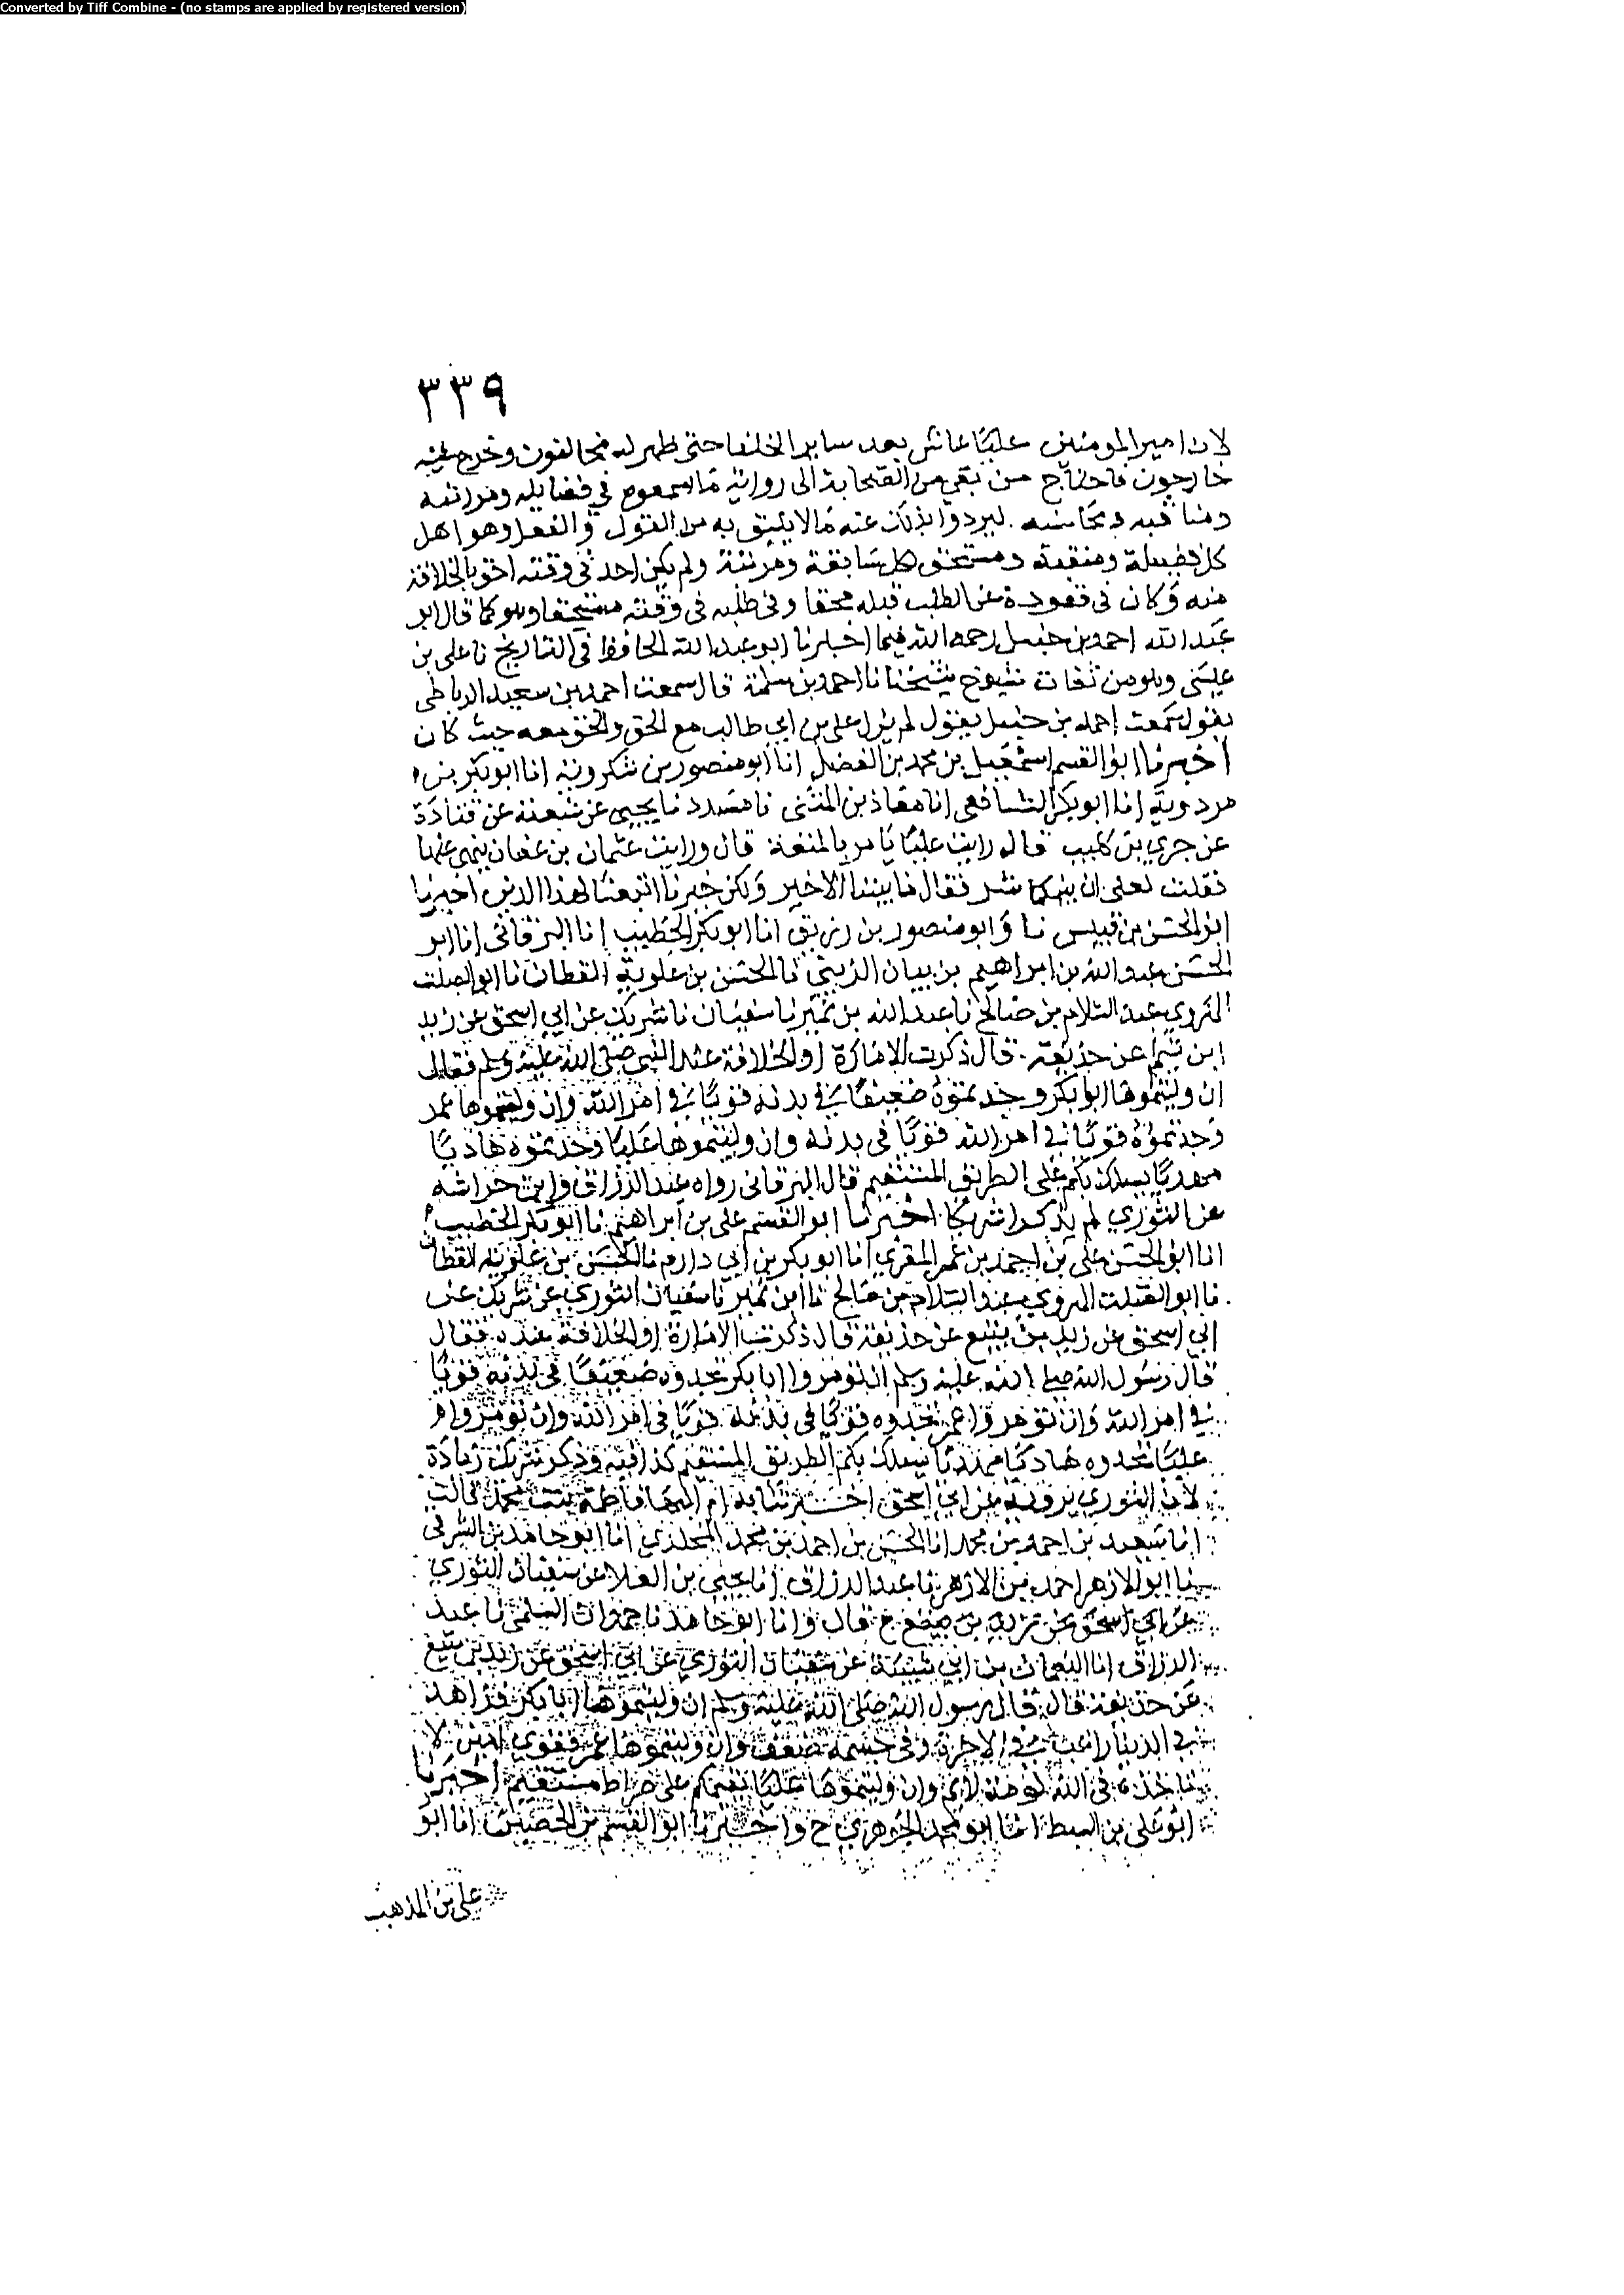 Converted by Tiff Combine - (no stamps are applied by registered version)
٣٣٩
لان امير المومنين عليا عاش بعد ساير الخلفا حتى ظهر له مخالفون وخرج عليه
خارجون فاحتاج من بقي من الصحابة الى رواية ما سمعوه في فضايله ومراتبه
ومناقبه ومحاسنه ليردوا بذلك عنه ما لا يليق به من القول والفعل وهو اهل
كل فضيلة ومنقبة ومستحق لكل سابقة ومرتبة ولم يكن احد في وقته احق بالخلافة
منه وكان في قعوده عن الطلب قبله محقا وفي طلبه في وقته مستحقا وهو كما قال ابو
عبد الله احمد بن حنبل رحمه الله فيما اخبرنا ابو عبد الله الحافظ في التاريخ نا على بن
عيسى وهو من ثقات شيوخ شيخنا نا احمد بن سلمة قال سمعت احمد بن سعيد الرباطى
يقول سمعت احمد بن حنبل يقول لم يزل على بن ابي طالب مع الحق والحق معه حيث كان
اخبرنا ابو القسم اسمعيل بن محمد بن الفضل انا ابو منصور بن شكرويه انا ابو بكر بن
مردويه انا ابو بكر الشافعى انا معاذ بن المثنى نا مسدد نا يحيى عن شعبة عن قتادة
عن جري بن كليب قال رايت عليا يامر بالمتعة قال ورايت عثمان بن عفان ينهى عنها
فقلت لعلى ان بينكما شر فقال ما بيننا الا خير ولكن خيرنا اتبعنا لهذا الدين اخبرنا
ابو الحسن بن قبيس نا وابو منصور بن زريق انا ابو بكر الخطيب انا البرقانى انا ابو
الحسن عبد الله بن ابراهيم بن بيان الزبيبي نا الحسن بن علويه القطان نا ابو الصلت
الهروي عبد السلام بن صالح نا عبد الله بن نمير نا سفيان نا شريك عن ابي اسحق عن زيد
ابن يثيع عن حذيفة قال ذكرت الامارة او الخلافة عند النبي صلى الله عليه وسلم فقال
ان وليتموها ابا بكر وجدتموه ضعيفا في بدنه قويا في امر الله وان وليتموها عمر
وجدتموه قويا في امر الله قويا في بدنه وان وليتموها عليا وجدتموه هاديا
مهديا يسلك بكم على الطريق المستقيم قال البرقانى رواه عبد الرزاق وابن هراسة
عن الثوري لم يذكرا شريكا اخبرنا ابو القسم على بن ابراهيم نا ابو بكر الخطيب
انا ابو الحسن على بن احمد بن عمر المقري انا ابو بكر بن ابي دارم نا الحسن بن علويه القطان
نا ابو الصلت الهروي عبد السلام بن صالح نا ابن نمير نا سفيان الثوري عن شريك عن
ابي اسحق عن زيد بن يثيع عن حذيفة قال ذكرت الامارة او الخلافة عنده فقال
قال رسول الله صلى الله عليه وسلم ان تومروا ابا بكر تجدوه ضعيفا في بدنه قويا
في امر الله وان تومروا عمر تجدوه قويا في بدنه قويا في امر الله وان تومروا
عليا تجدوه هاديا مهديا يسلك بكم الطريق المستقيم كذا فيه وذكر شريك زيادة
لان الثوري يرويه عن ابي اسحق اخبرتنا به ام البها فاطمة بنت محمد قالت
انا سعيد بن احمد بن محمد انا الحسن بن احمد بن محمد المخلدي انا ابو حامد بن الشرقى
نا ابو الازهر احمد بن الازهر نا عبد الرزاق انا يحيى بن العلا عن سفيان الثوري
عن ابي اسحق عن زيد بن يثيع ح قال وانا ابو حامد نا حمدان السلمى نا عبد
الرزاق انا النعمان بن ابي شيبة عن سفيان الثوري عن ابي اسحق عن زيد بن يثيع
عن حذيفة قال قال رسول الله صلى الله عليه وسلم ان وليتموها ابا بكر فزاهد
في الدنيا راغب في الاخرة وفي جسمه ضعف وان وليتموها عمر فقوي امين لا
تاخذه في الله لومة لايم وان وليتموها عليا يقيمكم على صراط مستقيم اخبرنا
ابو على بن السبط انا ابو محمد الجوهري ح واخبرنا ابو القسم بن الحصين انا ابو
على بن المذهب